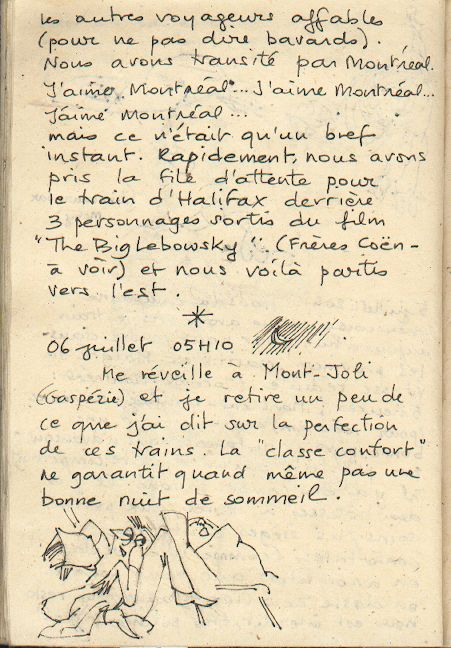 les autres voyageurs affables
(pour ne pas dire bavards).
Nous avons transité par Montréal.
J'aime Montréal... J'aime Montréal...
J'aime Montréal...
mais ce n'était qu'un bref
instant. Rapidement, nous avons
pris la file d'attente pour
le train d'Halifax derrière
3 personnages sortis du film
"The Big Lebowsky". (Frères Coën -
à voir) et nous voilà partis
vers l'est.
06 juillet 05H10
Me réveille à Mont-Joli
(Gaspérie) et je retire un peu de
ce que j'ai dit sur la perfection
de ces trains. La "classe confort"
ne garantit quand même pas une
bonne nuit de sommeil.